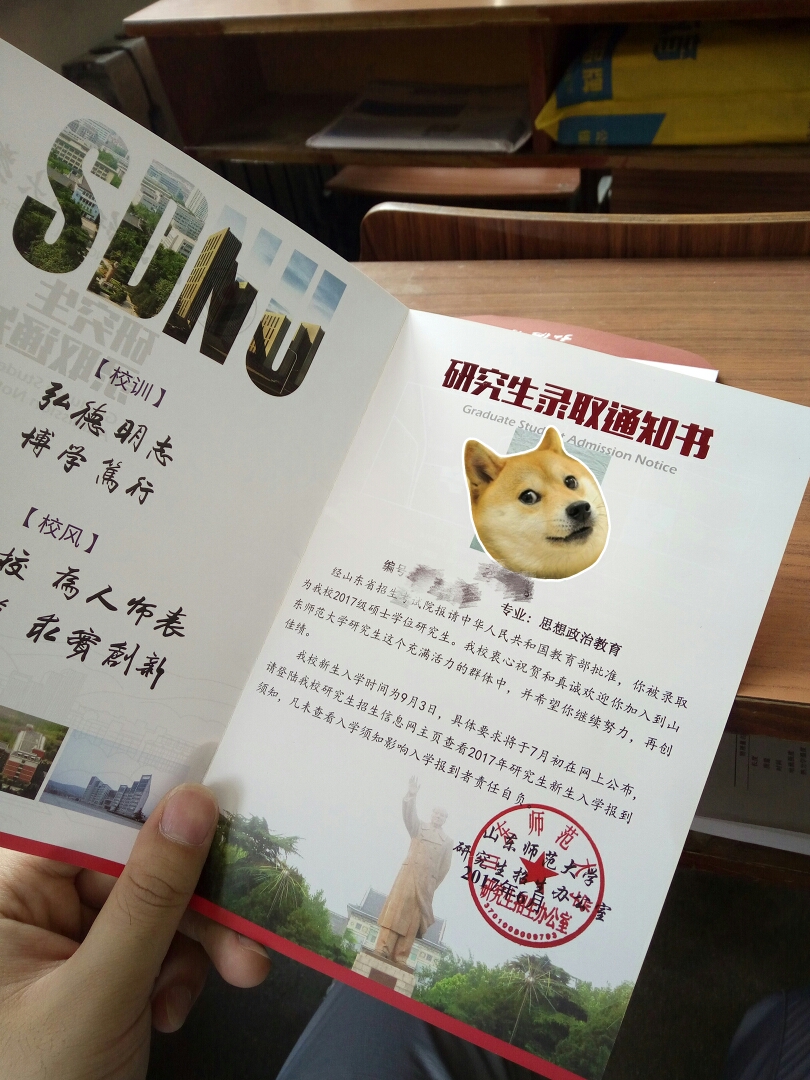 SDNU
【校训】
弘德明志
博学笃行
【校风】
校 为人师表
求实创新
研究生录取通知书
Graduate Student Admission Notice
编号
专业：思想政治教育
经山东省招生考试院报请中华人民共和国教育部批准，你被录取
为我校2017级硕士学位研究生。我校衷心祝贺和真诚欢迎你加入到山
东师范大学研究生这个充满活力的群体中，并希望你继续努力，再创
佳绩。
我校新生入学时间为9月3日，具体要求将于7月初在网上公布，
请登陆我校研究生招生信息网主页查看2017年研究生新生入学报到
须知，凡未查看入学须知影响入学报到者责任自负。
山东师范大学
研究生招生办公室
2017年6月
研究生招生办公室
3701000009793